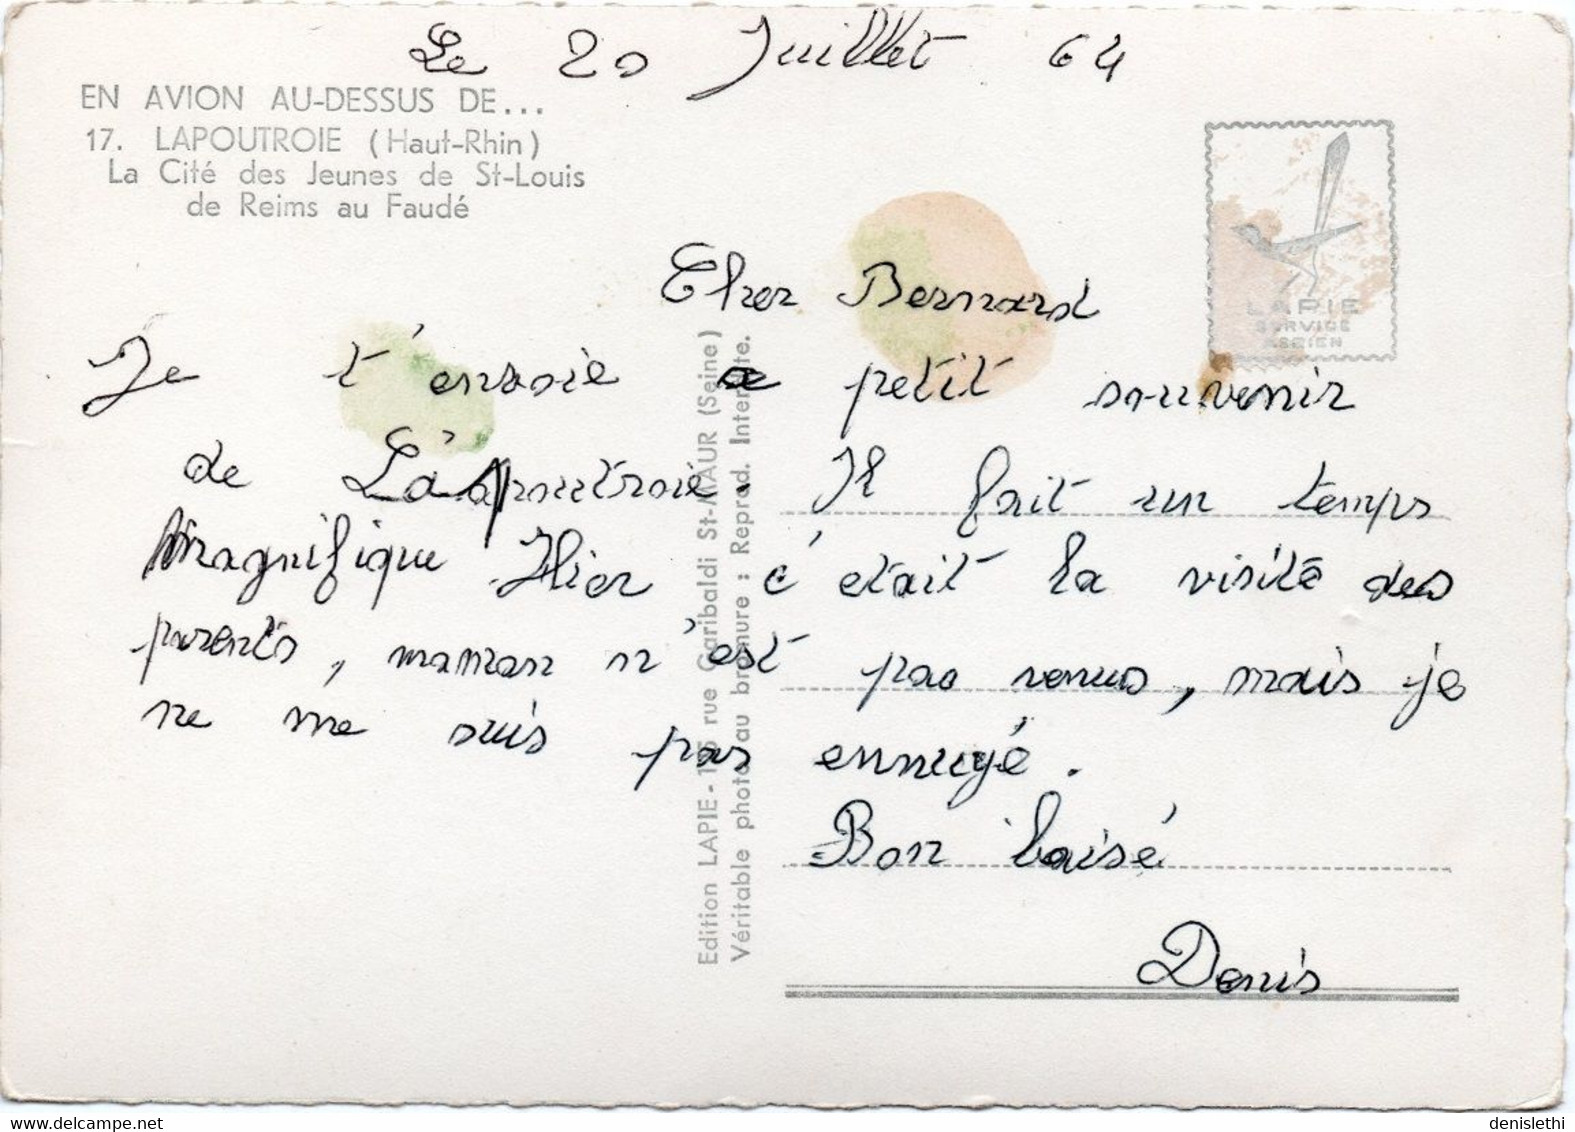 Le 20 Juillet 64
EN AVION AU-DESSUS DE...
17. LAPOUTROIE (Haut-Rhin)
La Cité des Jeunes de St-Louis
de Reims au Faudé
LAPIE
SERVICE
AERIEN
Cher Bernard
Je t'envoie petit souvenir
de Lapoutroie. Il fait un temps
magnifique Hier c'etait la visite des
parents, maman n'est pas venus, mais je
ne me suis pas ennuyé.
Bon baisé
Denis
Edition LAPIE - rue Garibaldi St-MAUR (Seine)
Véritable photo au bromure : Reprod. Interdite.
delcampe.net
denislethi